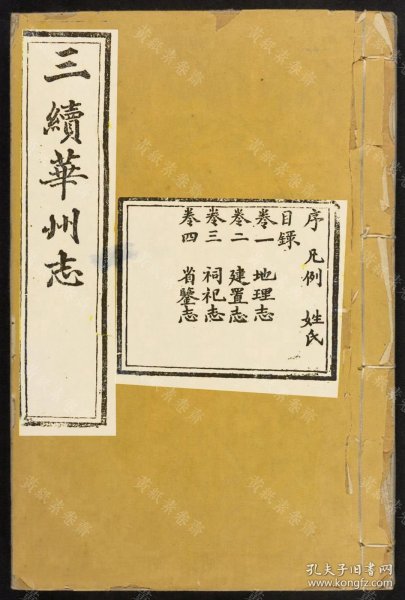 三續華州志
序 凡例 姓氏
目錄
卷一 地理志
卷二 建置志
卷三 祠祀志
卷四 省鑒志
孔夫子旧书网
www.kongfz.com